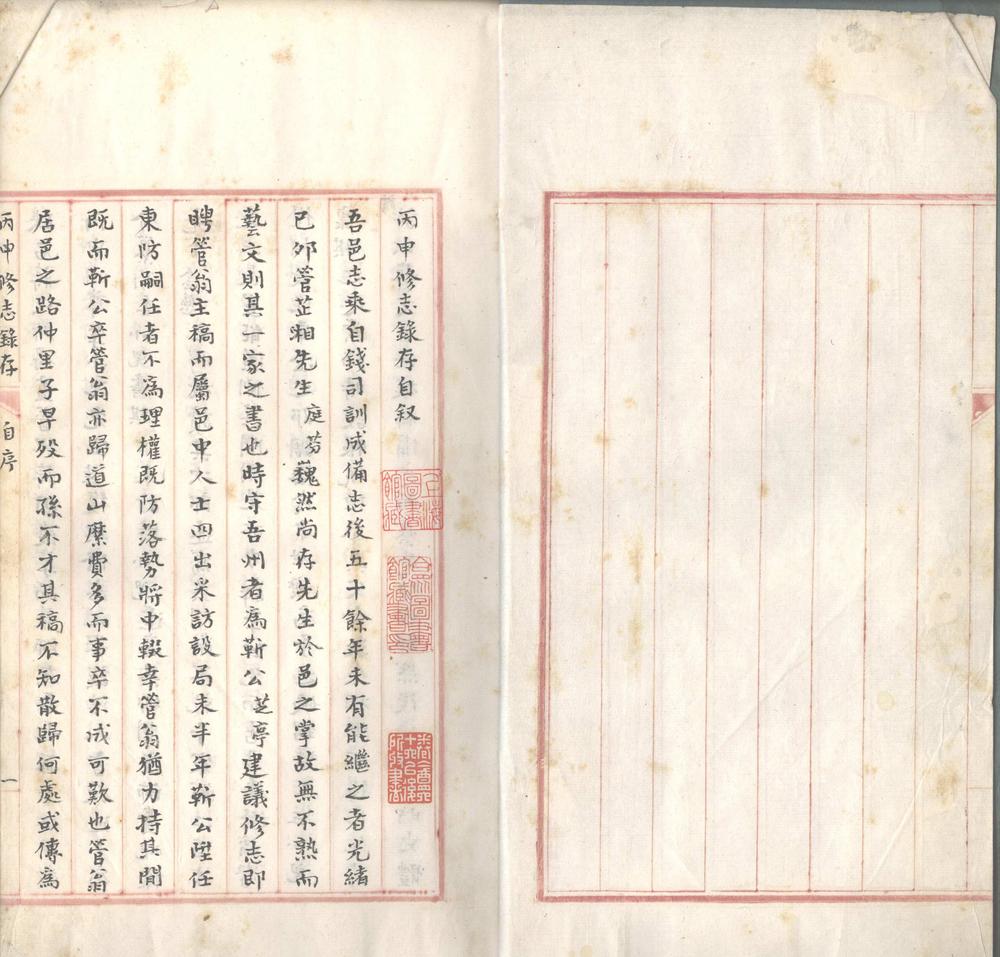 丙申修志錄存自叙
吾邑志乘自錢司訓成備志後五十餘年未有能繼之者光緒
己卯管芷湘先生庭芬巍然尚存先生於邑之掌故無不熟而
藝文則其一家之書也時守吾州者為靳公芝亭建議修志即
聘管翁主稿而屬邑中人士四出采訪設局未半年靳公陞任
東防嗣任者不為理權既防落勢將中輟幸管翁猶力持其間
既而靳公卒管翁亦歸道山縻費多而事卒不成可歎也管翁
居邑之路仲里子早歿而孫不才其稿不知散歸何處或傳為
丙申修志錄存
自序
一
圖書
館藏
館藏書